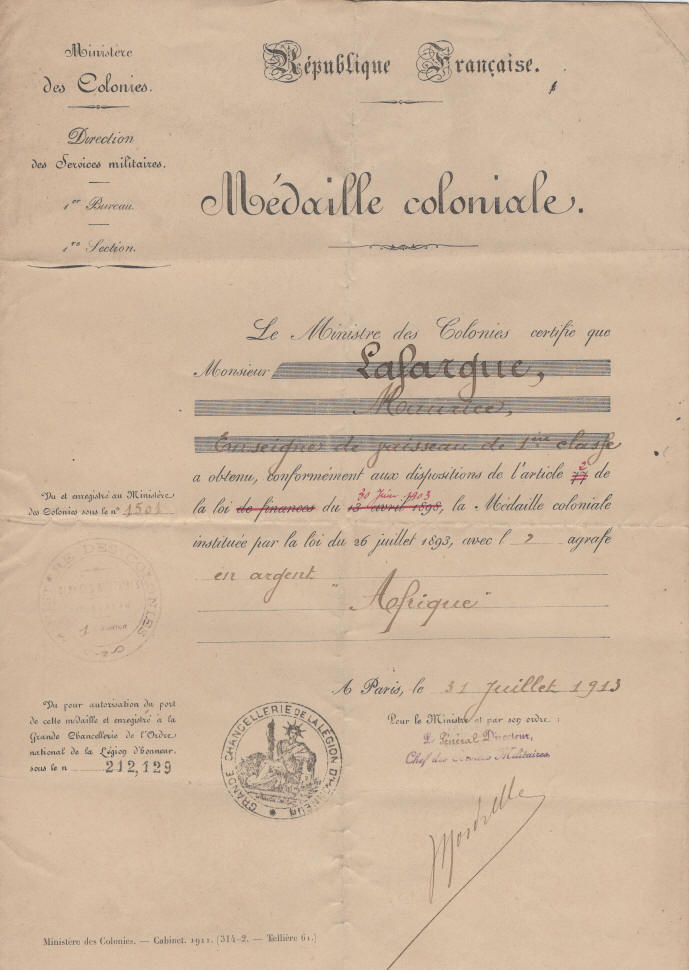 Ministère
des Colonies.
Direction
des Services militaires.
1er Bureau.
1re Section.
République Française.
Médaille coloniale.
Le Ministre des Colonies certifie que
Monsieur Lafargue,
Maurice,
Enseigne de vaisseau de 1ère classe
2
a obtenu, conformément aux dispositions de l'article 77 de
30 Juin 1903
la loi de finances du 13 avril 1898, la Médaille coloniale
instituée par la loi du 26 juillet 1893, avec l' agrafe
en argent
"Afrique"
Vu et enregistré au Ministère
des Colonies sous le n° 1501
A Paris, le 31 Juillet 1913
Pour le Ministre et par son ordre :
Le Général Directeur,
Chef des Services Militaires
Vu pour autorisation du port
de cette médaille et enregistré à la
Grande Chancellerie de l'Ordre
national de la Légion d'honneur.
sous le n 212,129
GRANDE CHANCELLERIE DE LA LÉGION D'HONNEUR
Ministère des Colonies. — Cabinet. 1911. (314-2. — Tellière 61.)